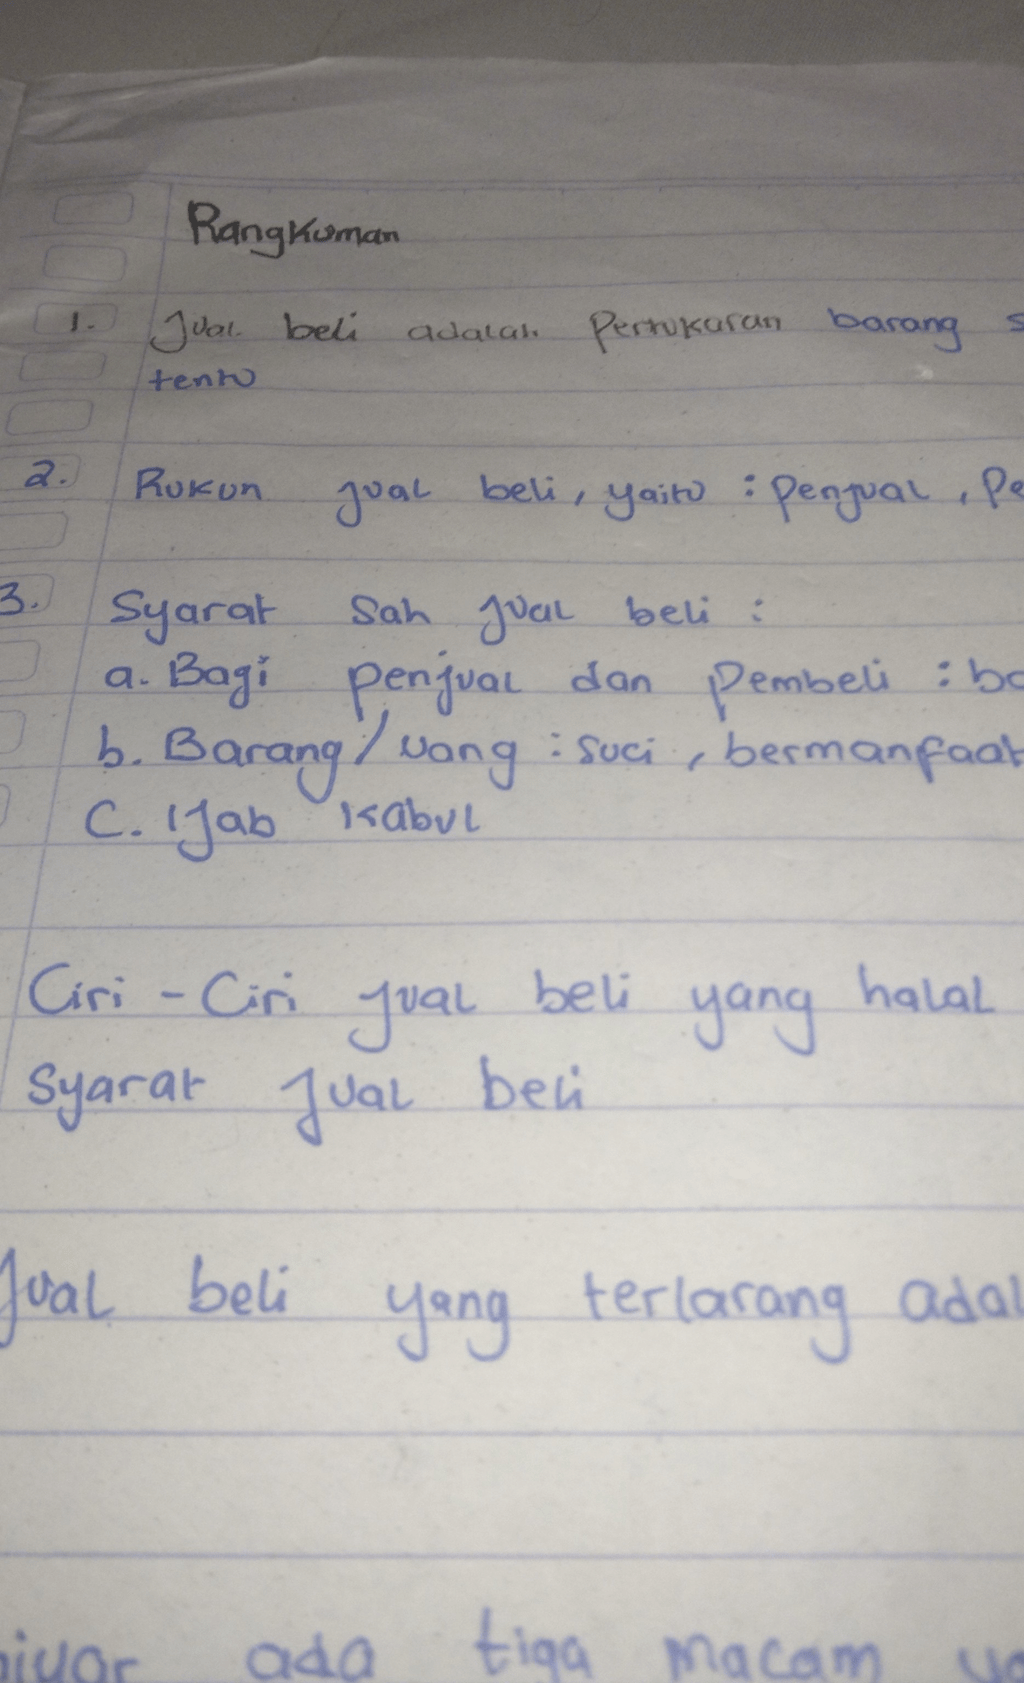 Rangkuman
1. Jual beli adalah Pertukaran barang
tentu
2. Rukun jual beli, yaitu : penjual,
3. Syarat Sah jual beli :
a. Bagi penjual dan Pembeli :
b. Barang / uang : suci, bermanfaat
C. Ijab kabul
Ciri - Ciri jual beli yang halal
Syarat Jual beli
Jual beli yang terlarang
ada tiga macam